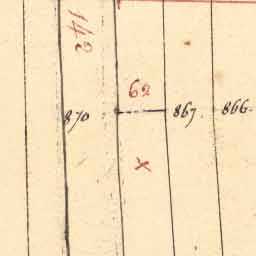 142
62
870
867.
866.
x